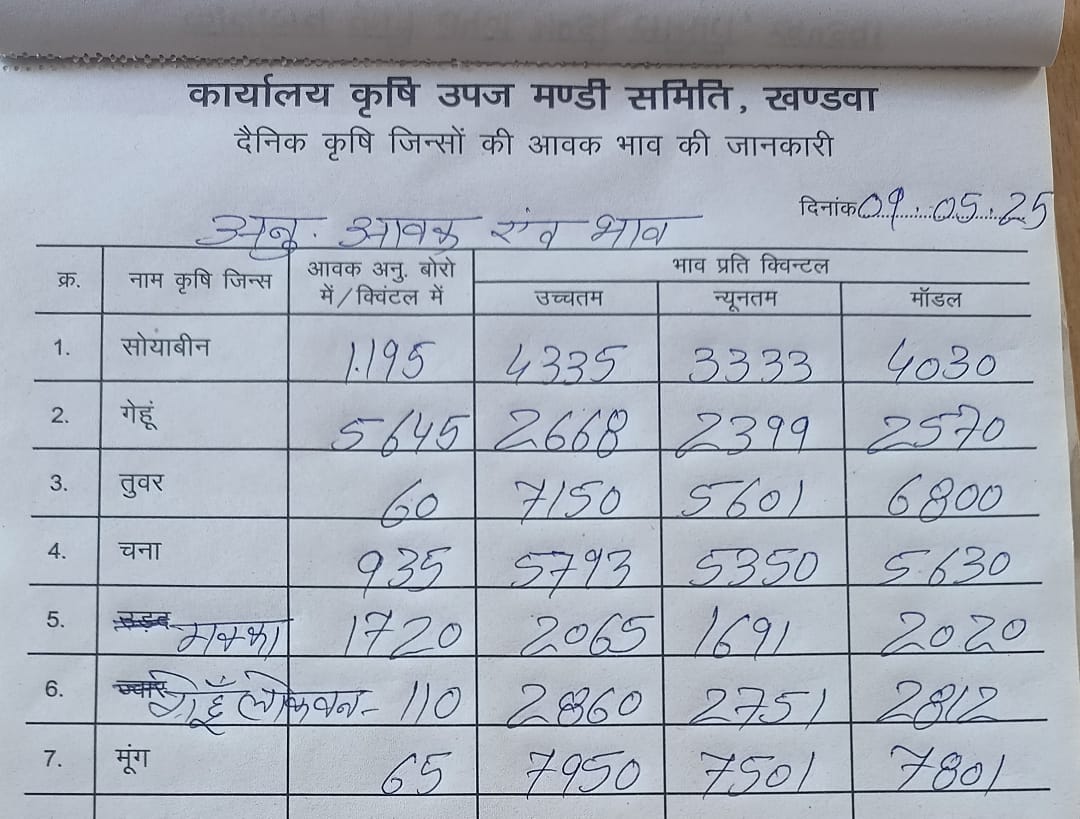 कार्यालय कृषि उपज मण्डी समिति, खण्डवा
दैनिक कृषि जिन्सों की आवक भाव की जानकारी
दिनांक 09.05.25
अनु. आवक एंव भाव
क्र. नाम कृषि जिन्स आवक अनु. बोरो में/क्विंटल में भाव प्रति क्विन्टल
उच्चतम न्यूनतम मॉडल
1. सोयाबीन 1195 4335 3333 4030
2. गेहूं 5645 2668 2399 2570
3. तुवर 60 7150 5601 6800
4. चना 935 5793 5350 5630
5. उड़द मक्का 1720 2065 1691 2020
6. ज्वार गेहूँ लोकवन- 110 2860 2751 2812
7. मूंग 65 7950 7501 7801